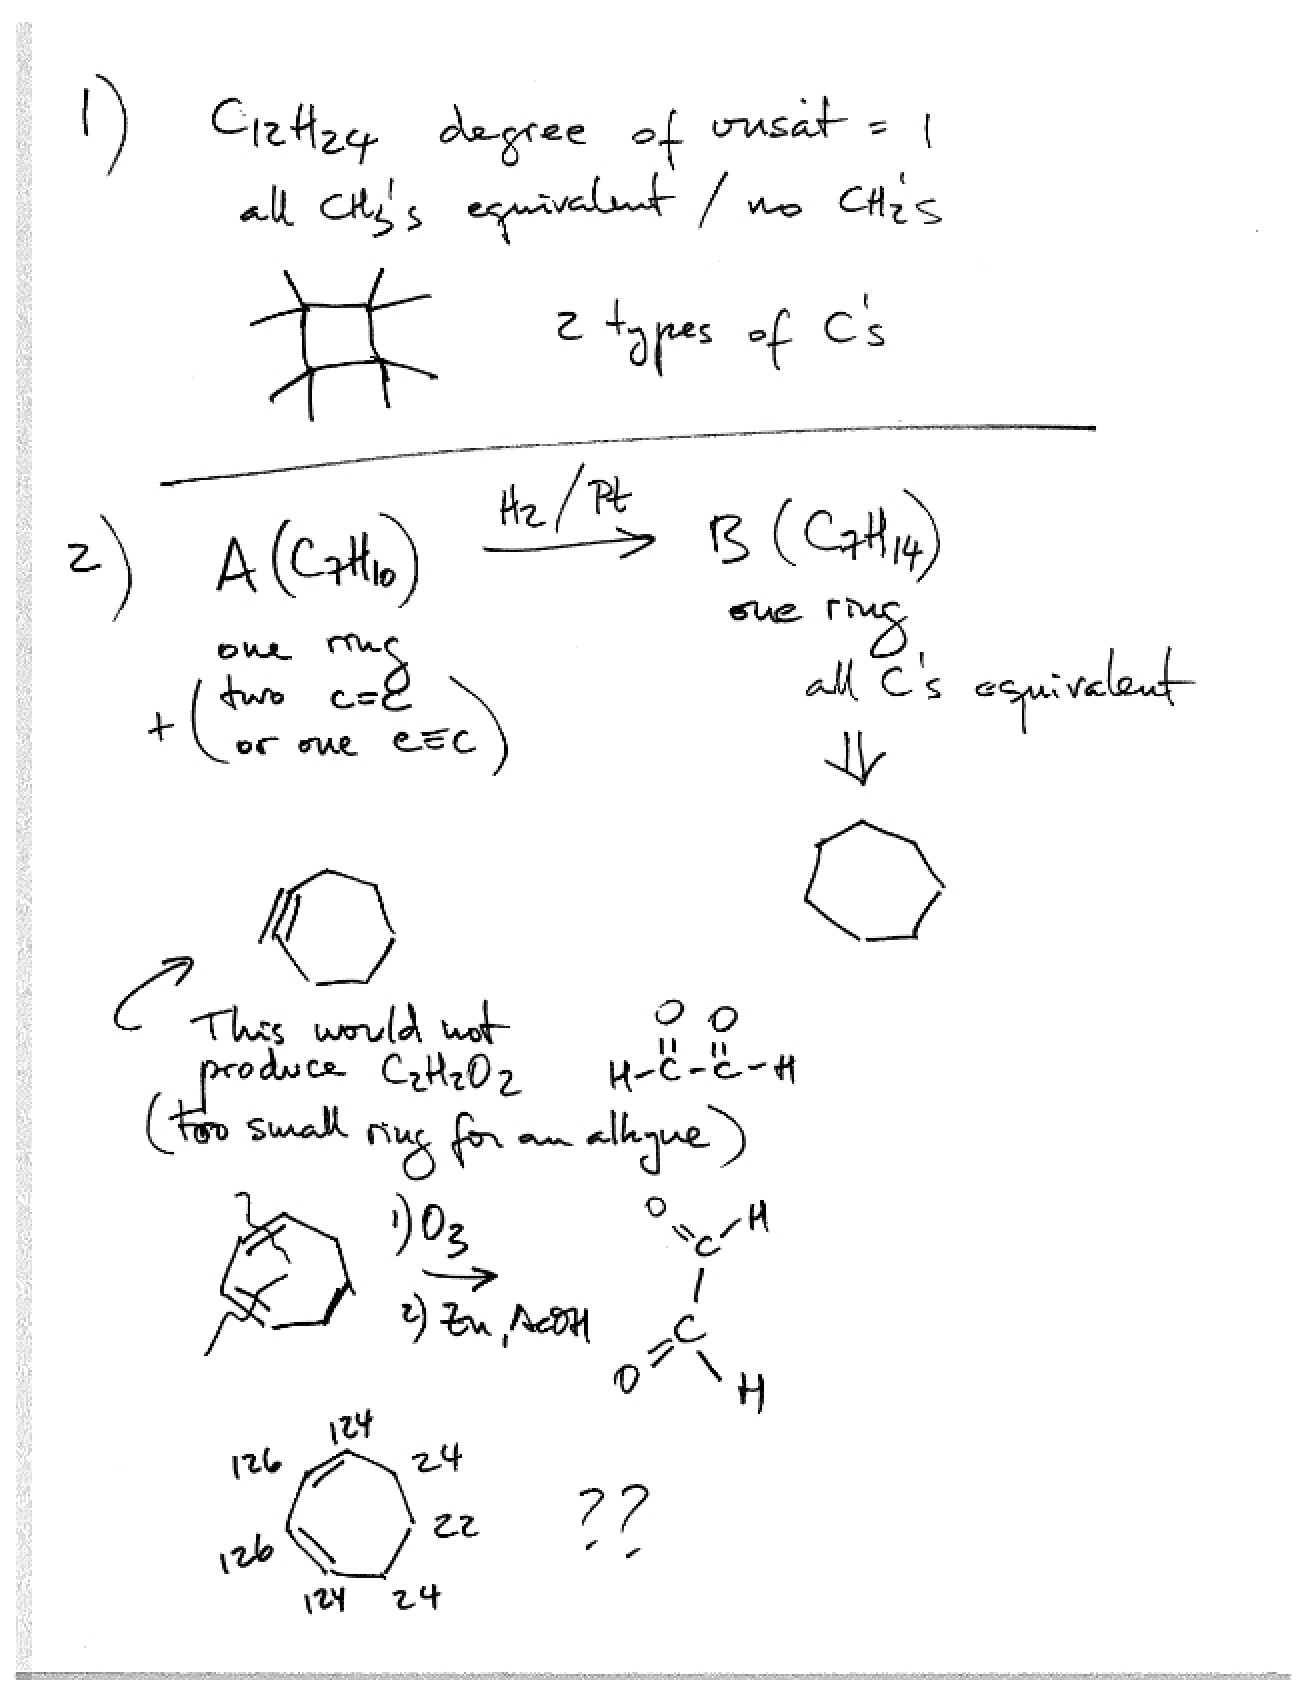 1) C12H24 degree of unsat = 1
all CH3's equivalent / no CH2's
2 types of C's
2) A (C7H10) H2/Pt B (C7H14)
one ring
one ring
all C's equivalent
two C=C
+ ( or one C≡C )
This would not
produce C2H2O2
O O
H-C-C-H
(too small ring for an alkyne)
1) O3
2) Zn, AcOH
O C H
C
O H
124
126 24
22 ??
126
124 24